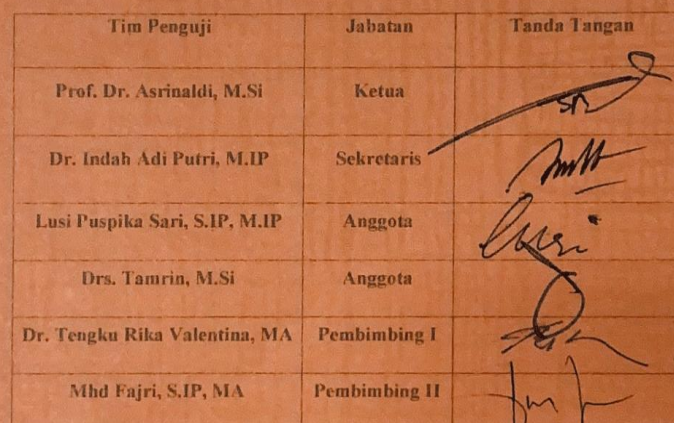 Tim Penguji Jabatan Tanda Tangan
Prof. Dr. Asrinaldi, M.Si Ketua
Dr. Indah Adi Putri, M.IP Sekretaris
Lusi Puspika Sari, S.IP, M.IP Anggota
Drs. Tamrin, M.Si Anggota
Dr. Tengku Rika Valentina, MA Pembimbing I
Mhd Fajri, S.IP, MA Pembimbing II